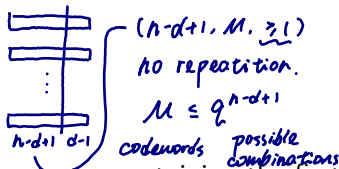 (n-d+1, M, ≥1)
no repeatition.
⋮
M ≤ q^{n-d+1}
n-d+1 d-1
codewords possible
combinations